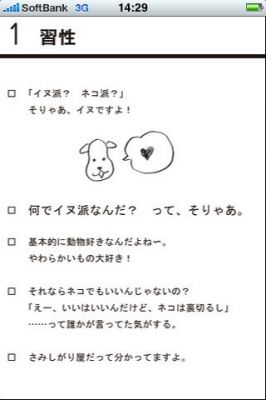 SoftBank 3G 14:29
1 習性
□ 「イヌ派？ ネコ派？」
そりゃあ、イヌですよ！
□ 何でイヌ派なんだ？ って、そりゃあ。
□ 基本的に動物好きなんだよね〜。
やわらかいもの大好き！
□ それならネコでもいいんじゃないの？
「えー、いいはいいんだけど、ネコは裏切るし」
……って誰かが言ってた気がする。
□ さみしがり屋だって分かってますよ。